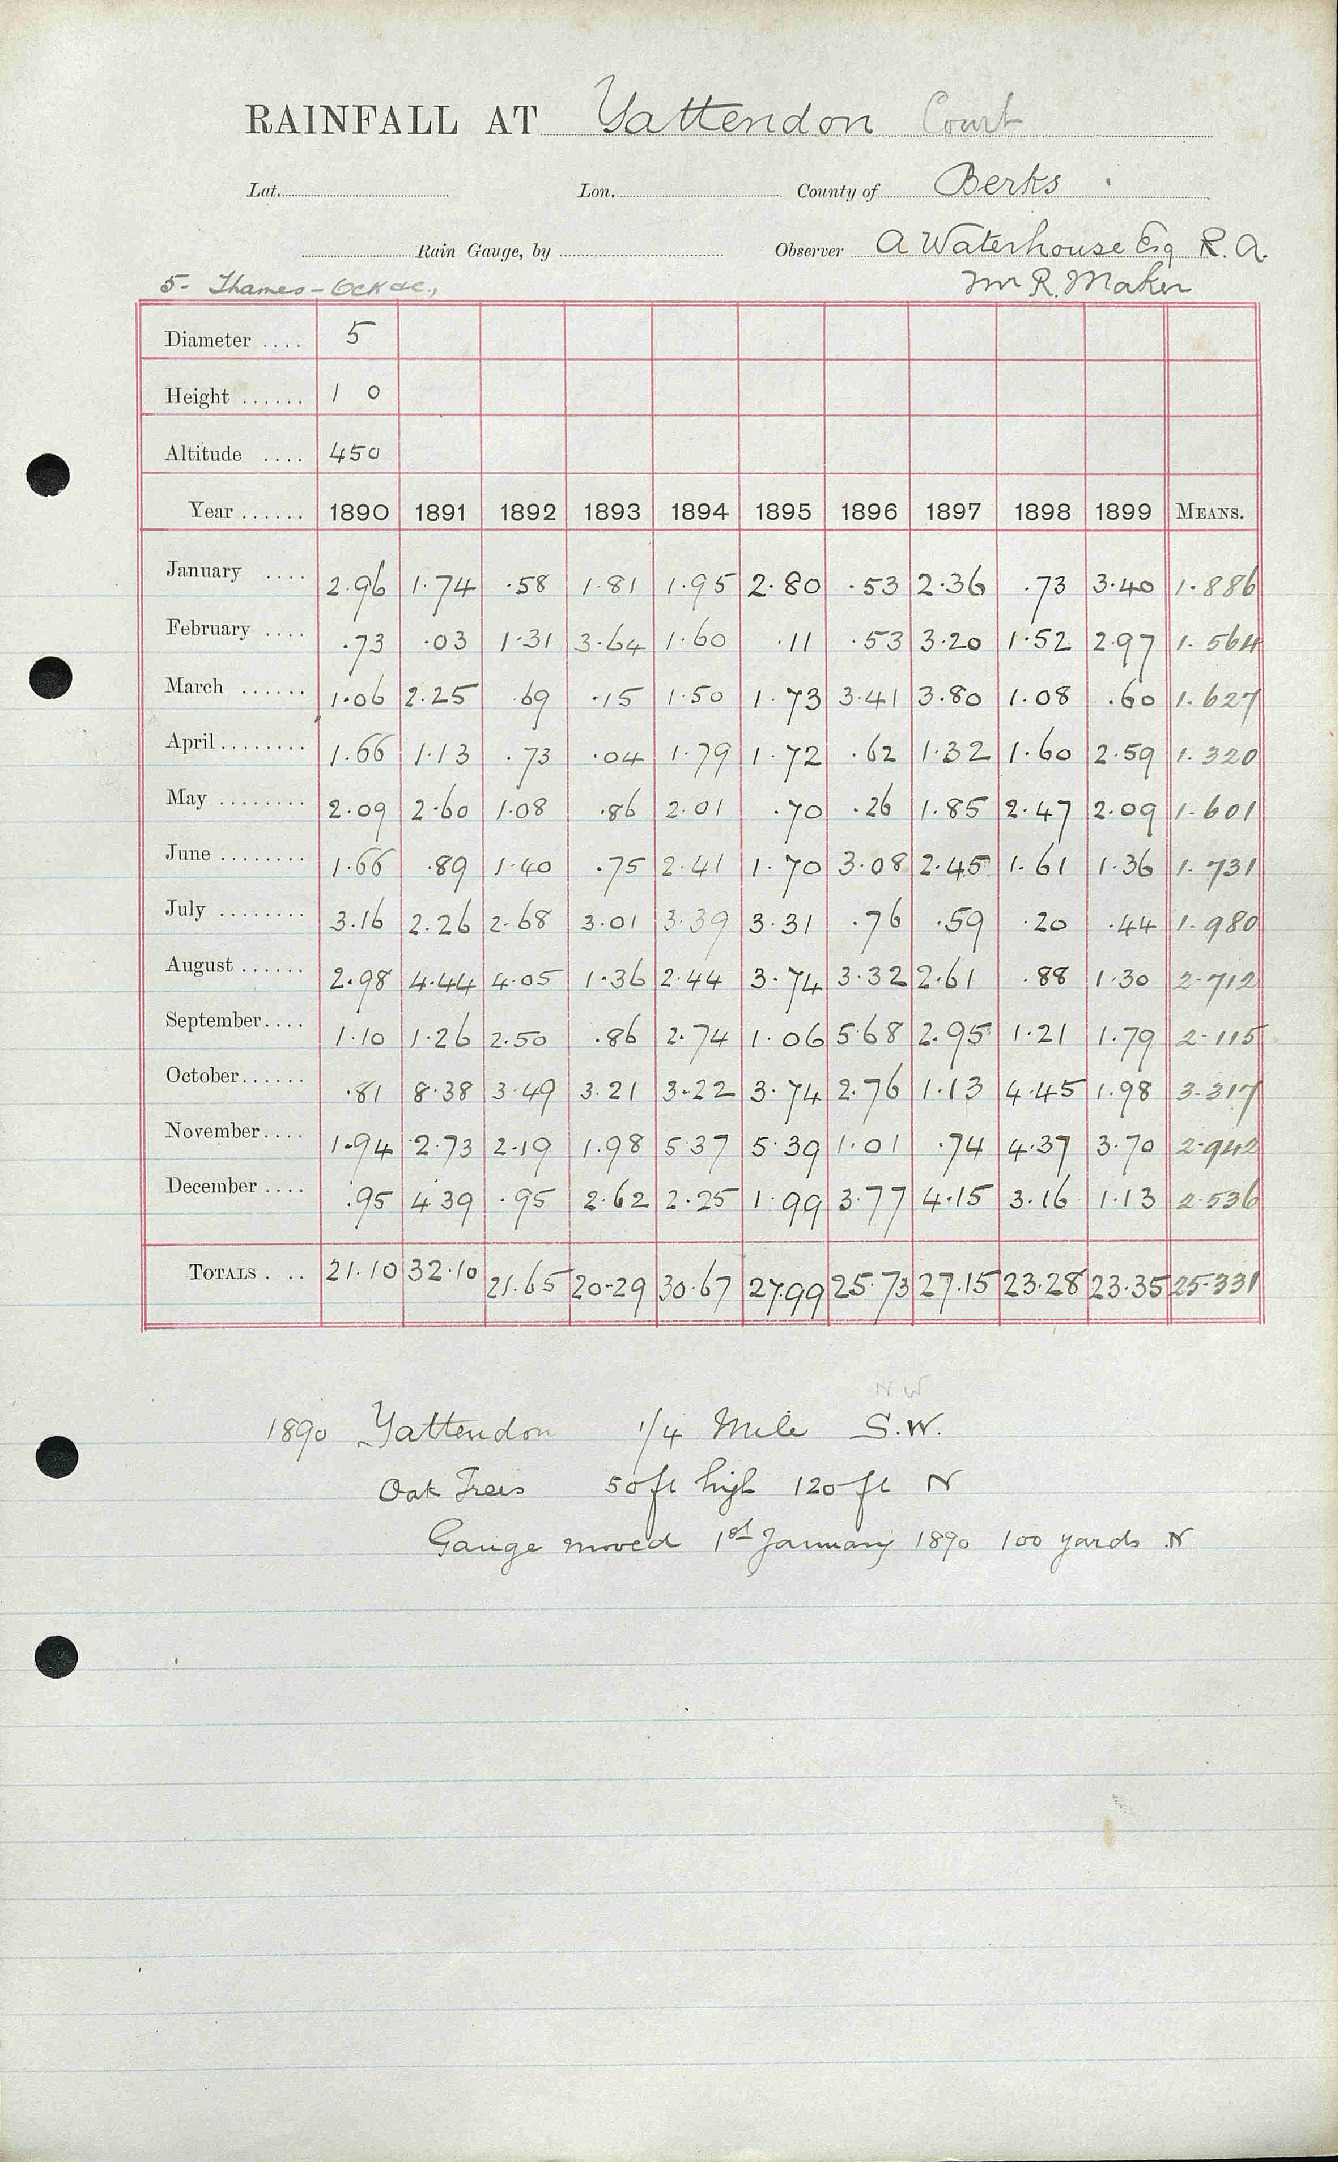 RAINFALL AT Yattendon Court
Lat. Lon. County of Berks
Rain Gauge, by Observer A Waterhouse Esq R.A.
5- Thames - Ock &c., Mr R. Maker
Diameter .... 5
Height ...... 1 0
Altitude .... 450
Year ...... 1890 1891 1892 1893 1894 1895 1896 1897 1898 1899 MEANS.
January .... 2.96 1.74 .58 1.81 1.95 2.80 .53 2.36 .73 3.40 1.886
February .... .73 .03 1.31 3.64 1.60 .11 .53 3.20 1.52 2.97 1.564
March ...... 1.06 2.25 .69 .15 1.50 1.73 3.41 3.80 1.08 .60 1.627
April ........ 1.66 1.13 .73 .04 1.79 1.72 .62 1.32 1.60 2.59 1.320
May ........ 2.09 2.60 1.08 .86 2.01 .70 .26 1.85 2.47 2.09 1.601
June ........ 1.66 .89 1.40 .75 2.41 1.70 3.08 2.45 1.61 1.36 1.731
July ........ 3.16 2.26 2.68 3.01 3.39 3.31 .76 .59 .20 .44 1.980
August ...... 2.98 4.44 4.05 1.36 2.44 3.74 3.32 2.61 .88 1.30 2.712
September .... 1.10 1.26 2.50 .86 2.74 1.06 5.68 2.95 1.21 1.79 2.115
October ...... .81 8.38 3.49 3.21 3.22 3.74 2.76 1.13 4.45 1.98 3.317
November .... 1.94 2.73 2.19 1.98 5.37 5.39 1.01 .74 4.37 3.70 2.942
December .... .95 4.39 .95 2.62 2.25 1.99 3.77 4.15 3.16 1.13 2.536
TOTALS . .. 21.10 32.10 21.65 20.29 30.67 27.99 25.73 27.15 23.28 23.35 25.331
N W
1890 Yattendon 1/4 Mile S.W.
Oak Trees 50 ft high 120 ft N
Gauge moved 1st January 1890 100 yards N